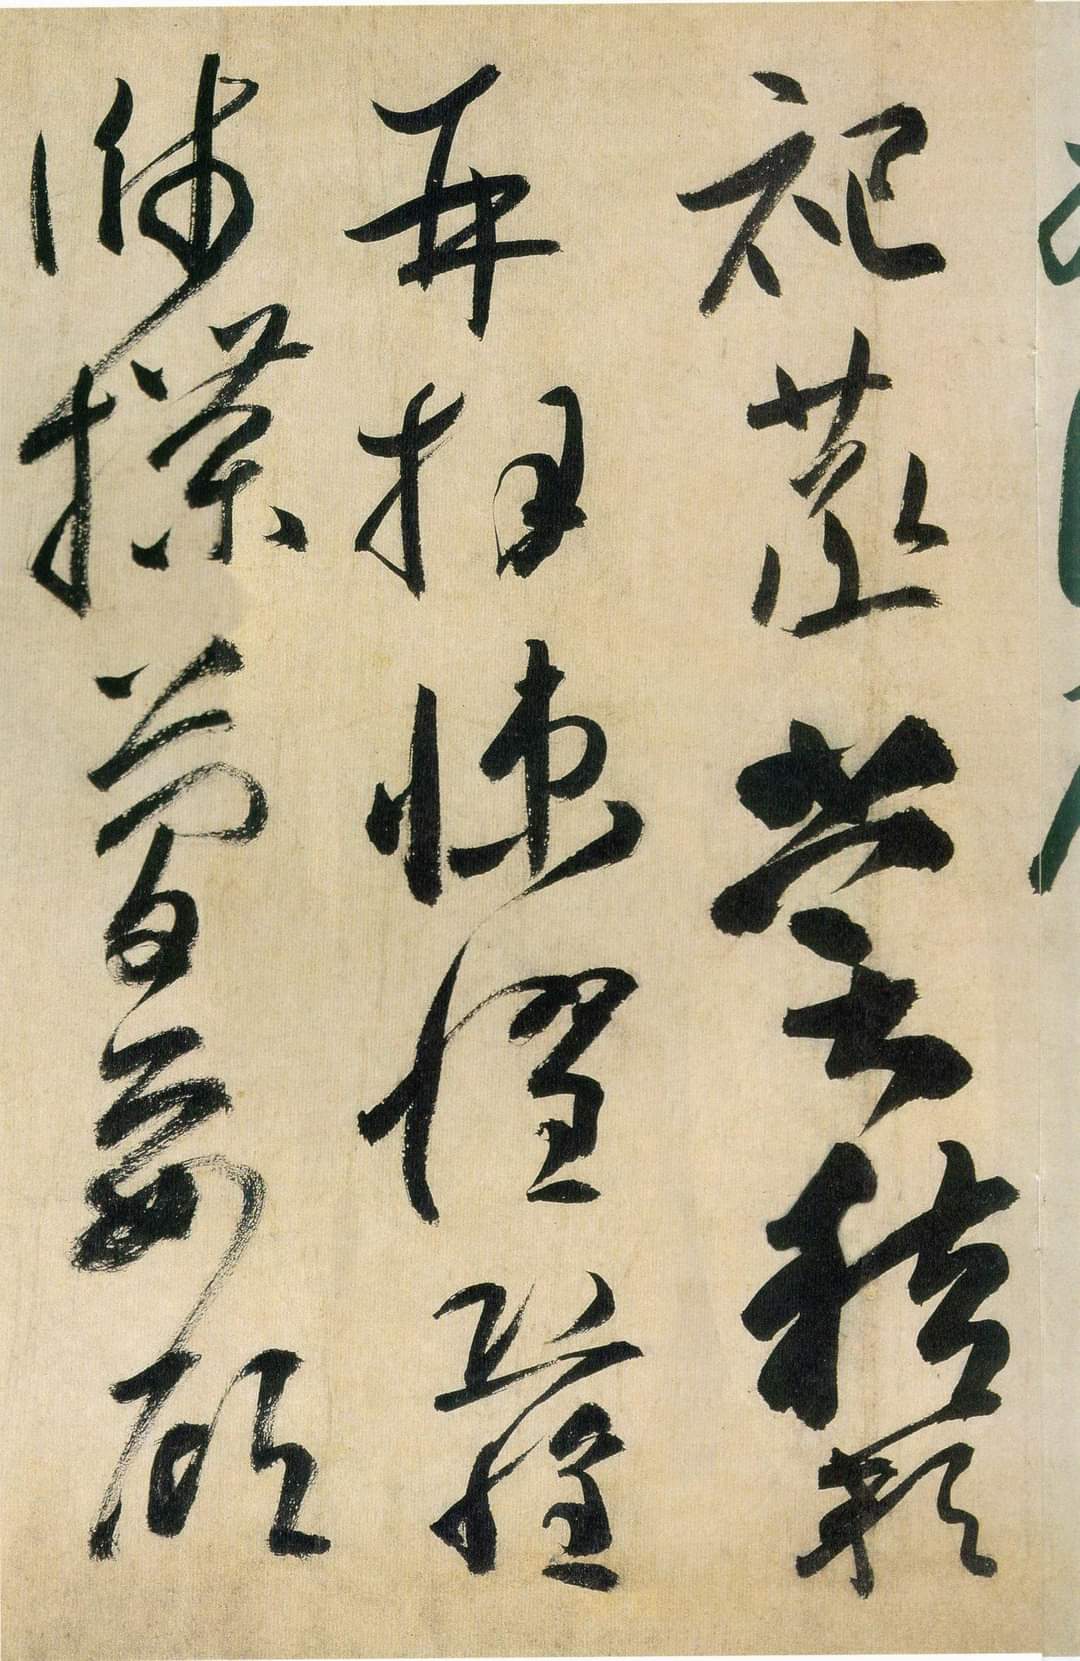 祀蒸嘗稽顙
再拜悚懼恐惶
牋牒簡要顧